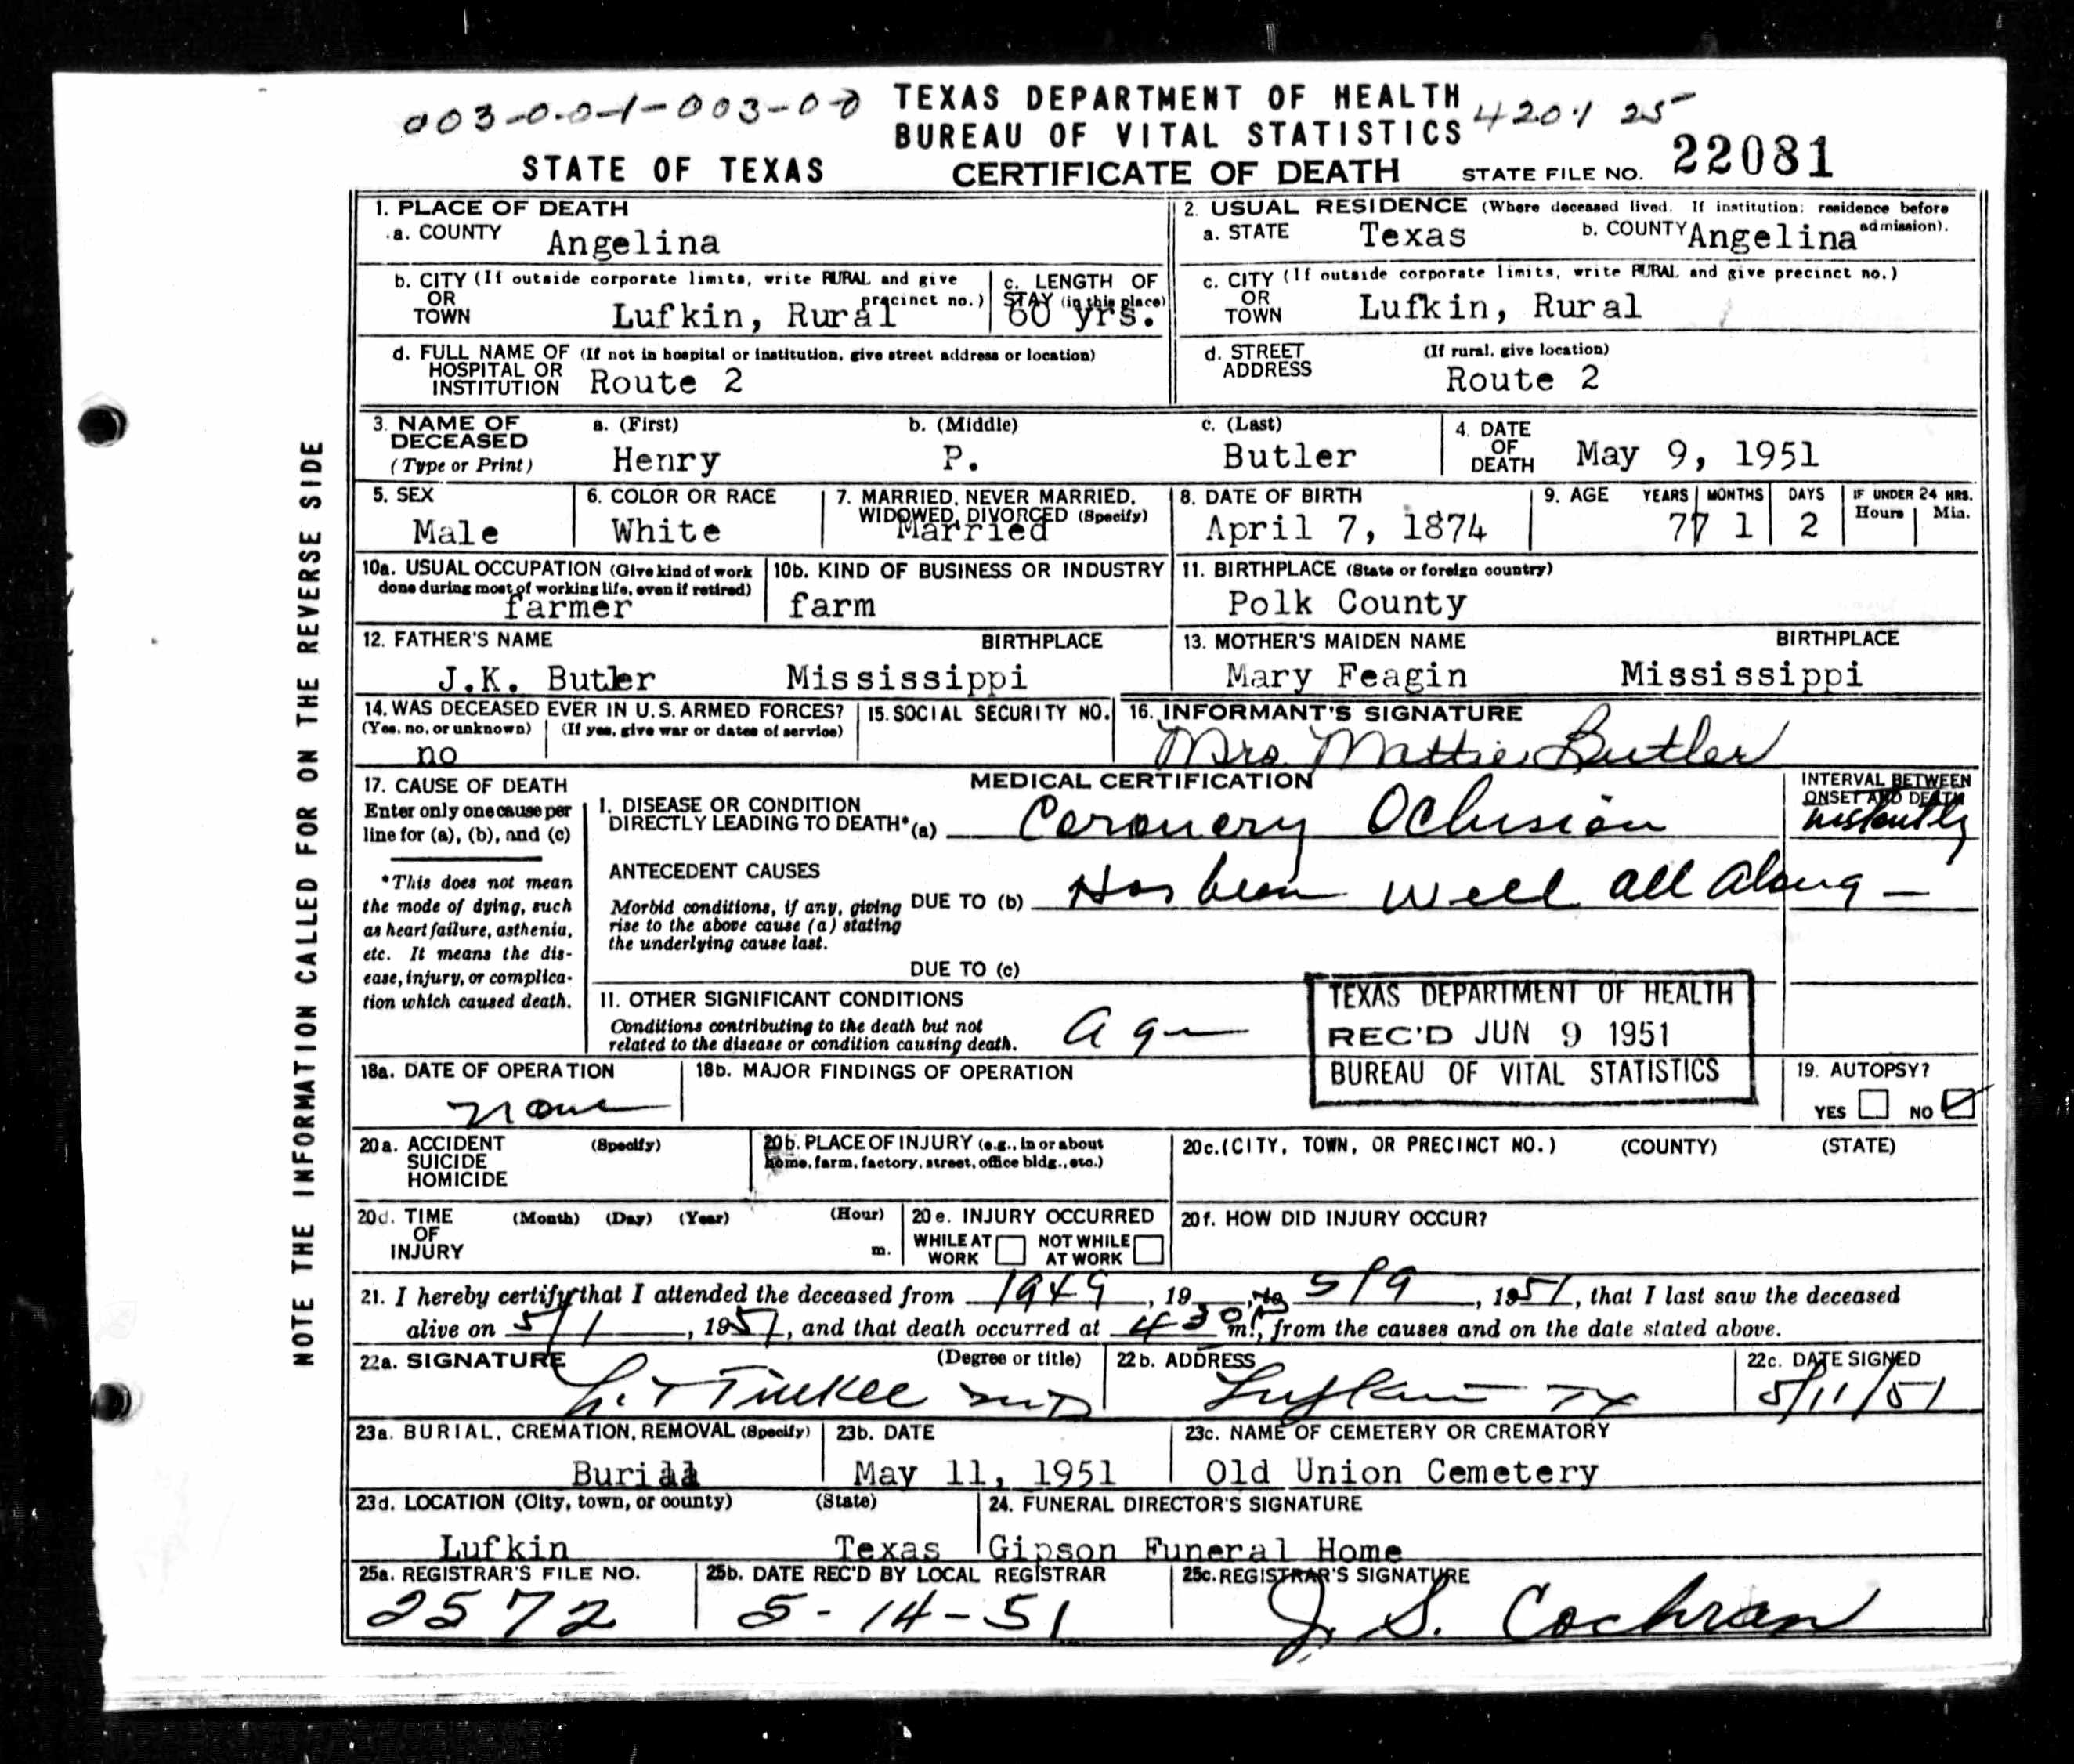 003-0-0-1-003-00 TEXAS DEPARTMENT OF HEALTH 420.1 25
BUREAU OF VITAL STATISTICS
STATE OF TEXAS CERTIFICATE OF DEATH STATE FILE NO. 22081
NOTE THE INFORMATION CALLED FOR ON THE REVERSE SIDE
1. PLACE OF DEATH
a. COUNTY Angelina
2. USUAL RESIDENCE (Where deceased lived. If institution: residence before admission).
a. STATE Texas b. COUNTY Angelina
b. CITY (If outside corporate limits, write RURAL and give precinct no.)
OR
TOWN Lufkin, Rural
c. LENGTH OF
STAY (in this place)
60 yrs.
c. CITY (If outside corporate limits, write RURAL and give precinct no.)
OR
TOWN Lufkin, Rural
d. FULL NAME OF (If not in hospital or institution, give street address or location)
HOSPITAL OR
INSTITUTION Route 2
d. STREET (If rural, give location)
ADDRESS Route 2
3. NAME OF a. (First) b. (Middle) c. (Last)
DECEASED
(Type or Print) Henry P. Butler
4. DATE
OF
DEATH May 9, 1951
5. SEX
Male
6. COLOR OR RACE
White
7. MARRIED, NEVER MARRIED,
WIDOWED, DIVORCED (Specify)
Married
8. DATE OF BIRTH
April 7, 1874
9. AGE YEARS MONTHS DAYS IF UNDER 24 HRS.
Hours Min.
77 1 2
10a. USUAL OCCUPATION (Give kind of work
done during most of working life, even if retired)
farmer
10b. KIND OF BUSINESS OR INDUSTRY
farm
11. BIRTHPLACE (State or foreign country)
Polk County
12. FATHER'S NAME BIRTHPLACE
J.K. Butler Mississippi
13. MOTHER'S MAIDEN NAME BIRTHPLACE
Mary Feagin Mississippi
14. WAS DECEASED EVER IN U.S. ARMED FORCES?
(Yes, no, or unknown) (If yes, give war or dates of service)
no
15. SOCIAL SECURITY NO.
16. INFORMANT'S SIGNATURE
Mrs. Mattie Butler
17. CAUSE OF DEATH
Enter only one cause per
line for (a), (b), and (c)
*This does not mean
the mode of dying, such
as heart failure, asthenia,
etc. It means the dis-
ease, injury, or complica-
tion which caused death.
MEDICAL CERTIFICATION
INTERVAL BETWEEN
ONSET AND DEATH
I. DISEASE OR CONDITION
DIRECTLY LEADING TO DEATH* (a) Coronery Oclusion instantly
ANTECEDENT CAUSES
Morbid conditions, if any, giving
rise to the above cause (a) stating
the underlying cause last.
DUE TO (b) Has been well all along –
DUE TO (c)
II. OTHER SIGNIFICANT CONDITIONS
Conditions contributing to the death but not
related to the disease or condition causing death.
Age
TEXAS DEPARTMENT OF HEALTH
REC'D JUN 9 1951
BUREAU OF VITAL STATISTICS
18a. DATE OF OPERATION
None
18b. MAJOR FINDINGS OF OPERATION
19. AUTOPSY?
YES NO
20a. ACCIDENT (Specify)
SUICIDE
HOMICIDE
20b. PLACE OF INJURY (e.g., in or about
home, farm, factory, street, office bldg., etc.)
20c. (CITY, TOWN, OR PRECINCT NO.) (COUNTY) (STATE)
20d. TIME (Month) (Day) (Year) (Hour)
OF
INJURY m.
20e. INJURY OCCURRED
WHILE AT NOT WHILE
WORK AT WORK
20f. HOW DID INJURY OCCUR?
21. I hereby certify that I attended the deceased from 1949, 19 , to 5/9, 1951, that I last saw the deceased
alive on 5/1, 1951, and that death occurred at 430 m., from the causes and on the date stated above.
22a. SIGNATURE (Degree or title)
MD
22b. ADDRESS
Lufkin TX
22c. DATE SIGNED
5/11/51
23a. BURIAL, CREMATION, REMOVAL (Specify)
Burial
23b. DATE
May 11, 1951
23c. NAME OF CEMETERY OR CREMATORY
Old Union Cemetery
23d. LOCATION (City, town, or county) (State)
Lufkin Texas
24. FUNERAL DIRECTOR'S SIGNATURE
Gipson Funeral Home
25a. REGISTRAR'S FILE NO.
2572
25b. DATE REC'D BY LOCAL REGISTRAR
5-14-51
25c. REGISTRAR'S SIGNATURE
J. S. Cochran